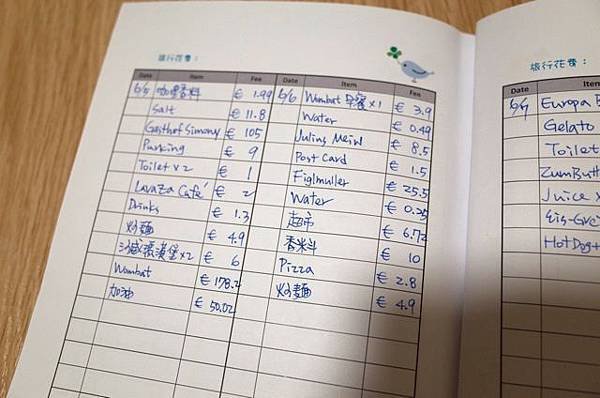 旅行花費：
Date Item Fee
6/5 咖哩香料 € 1.99
Salt € 11.8
Gasthof Simony € 105
Parking € 9
Toilet x2 € 1
LavaZa Café € 2
Drinks € 1.3
炒麵 € 4.9
沙威瑪漢堡x2 € 6
Wombat € 178.2
加油 € 50.02
Date Item Fee
6/6 Wombat 早餐 x1 € 3.9
Water € 0.49
Julius Meinl € 8.5
Post Card € 1.5
Figlmuller € 25.5
Water € 0.25
超市 € 6.72
香米料 € 10
Pizza € 2.8
炒麵 € 4.9
旅行花費：
Date Item
6/7 Europa
Gelato
Toilet
Juice x
Eis-Gre
HotDog+